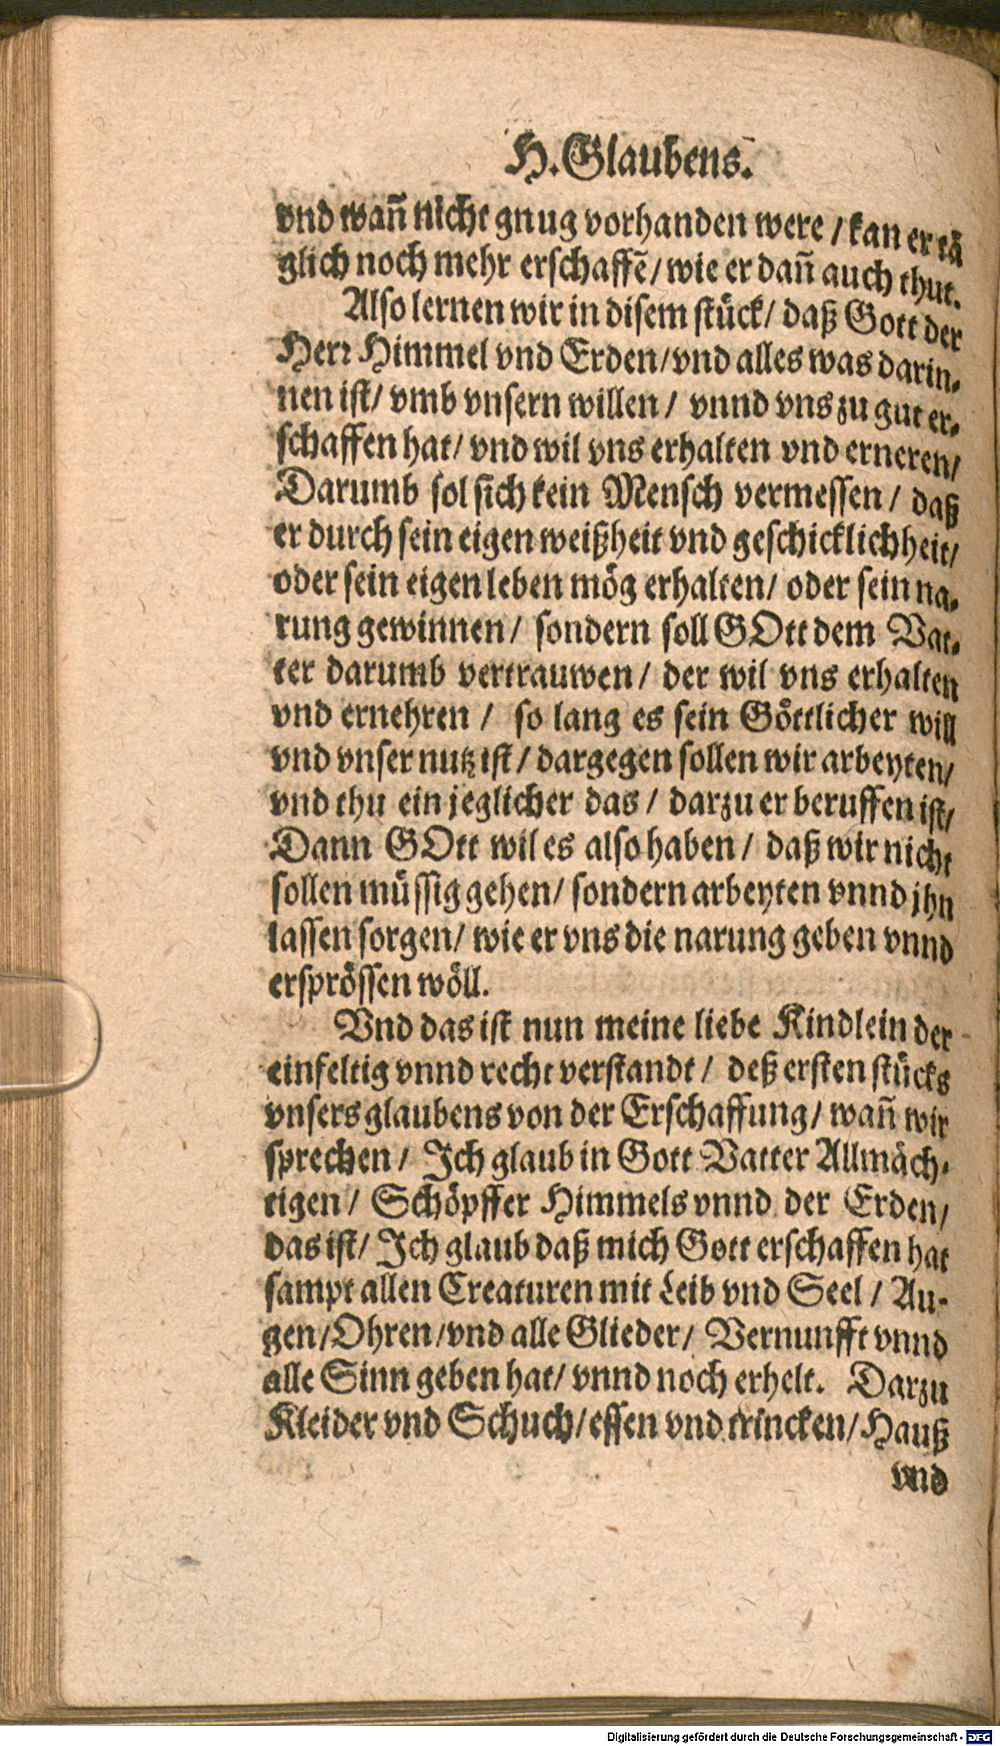 H. Glaubens.
vnd wañ nicht gnug vorhanden were / kan er tä
glich noch mehr erschaffẽ / wie er dañ auch thut.
Also lernen wir in disem stück / daß Gott der
Herr Himmel vnd Erden / vnd alles was darin-
nen ist / vmb vnsern willen / vnnd vns zu gut er-
schaffen hat / vnd wil vns erhalten vnd erneren /
Darumb sol sich kein Mensch vermessen / daß
er durch sein eigen weißheit vnd geschicklichheit /
oder sein eigen leben mög erhalten / oder sein na-
rung gewinnen / sondern soll GOtt dem Vat-
ter darumb vertrauwen / der wil vns erhalten
vnd ernehren / so lang es sein Göttlicher will
vnd vnser nutz ist / dargegen sollen wir arbeyten /
vnd thu ein jeglicher das / darzu er beruffen ist /
Dann GOtt wil es also haben / daß wir nicht
sollen müssig gehen / sondern arbeyten vnnd jhn
lassen sorgen / wie er vns die narung geben vnnd
ersprössen wöll.
Vnd das ist nun meine liebe Kindlein der
einfeltig vnnd recht verstandt / deß ersten stücks
vnsers glaubens von der Erschaffung / wañ wir
sprechen / Ich glaub in Gott Vatter Allmäch-
tigen / Schöpffer Himmels vnnd der Erden /
das ist / Ich glaub daß mich Gott erschaffen hat
sampt allen Creaturen mit Leib vnd Seel / Au-
gen / Ohren / vnd alle Glieder / Vernunfft vnnd
alle Sinn geben hat / vnnd noch erhelt. Darzu
Kleider vnd Schuch / essen vnd trincken / Hauß
vnd
Digitalisierung gefördert durch die Deutsche Forschungsgemeinschaft - DFG